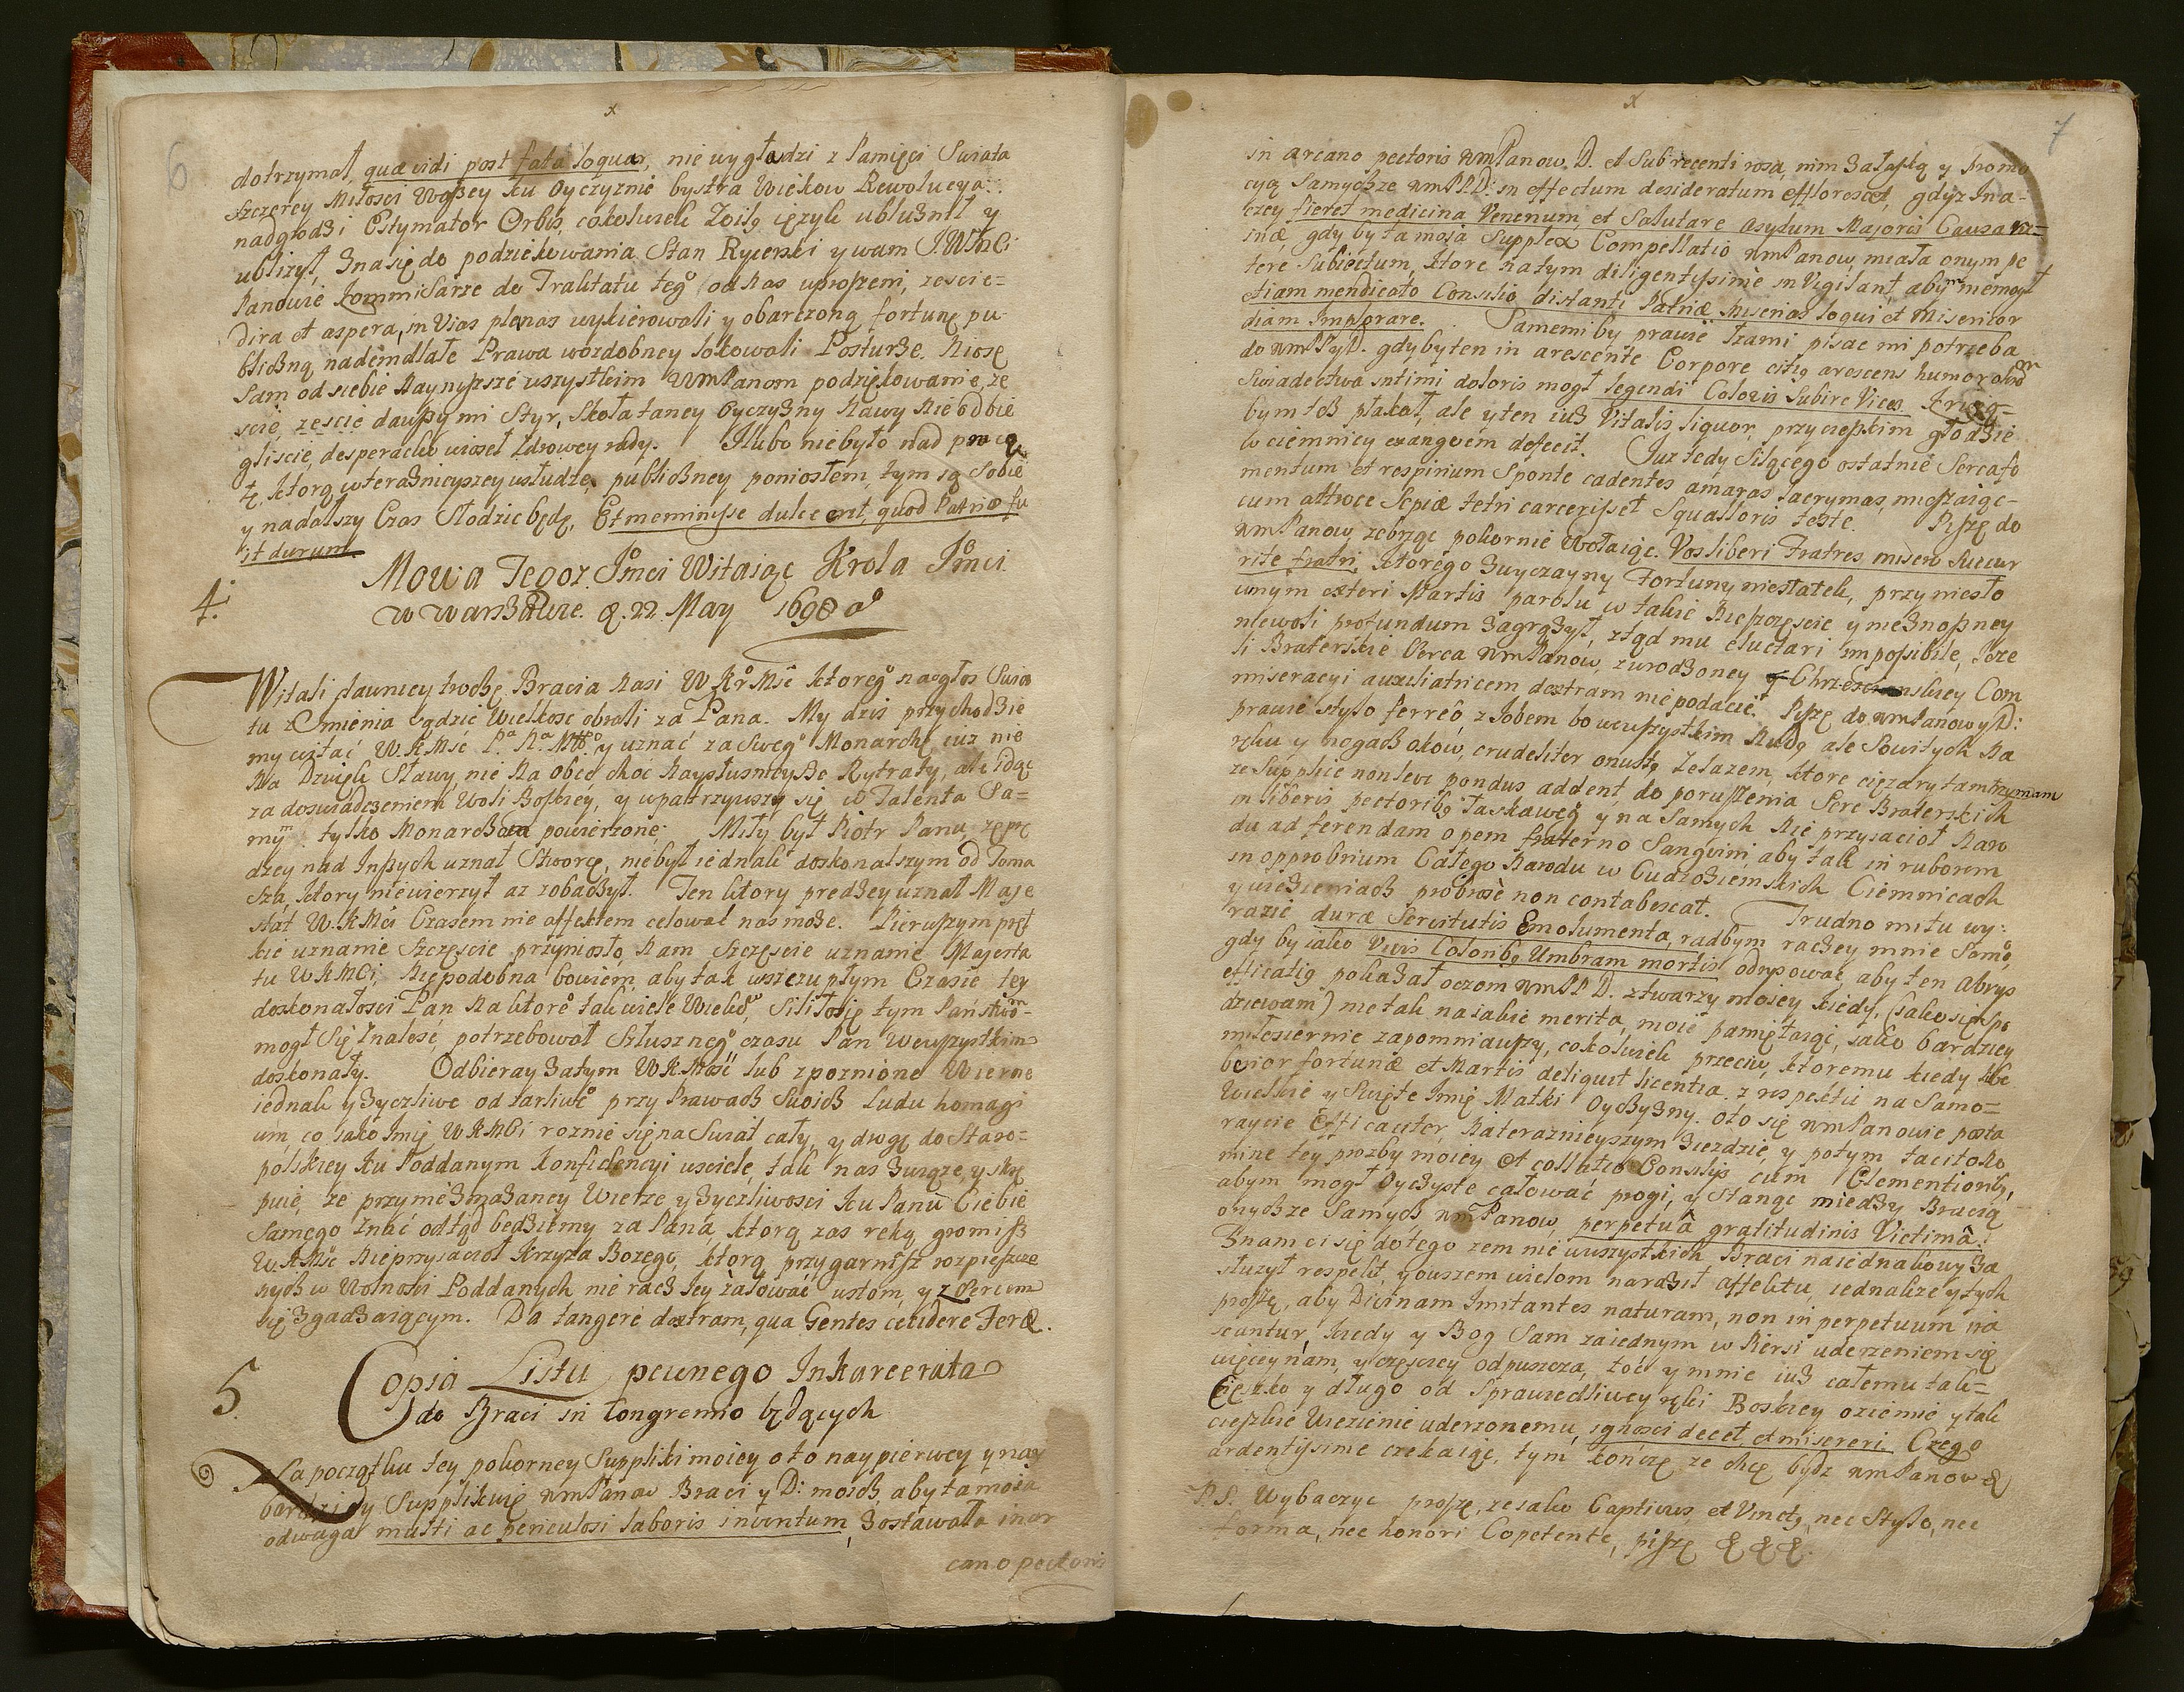 6
dotrzymał, quæ vidi post fata loquar, nie wygładzi z Pamięci Swiata
szczerey Miłosci Waszey ku Oyczyznie bystra Wiekow Rewolucya.
nadgrodzi Estymator Orbis, cokolwiek Zoilę ięzyk ubluznił y
ubliżył, zna się do podziękowania Stan Rycerski y wam J.W. Mci
Panowie Kommisarze do Traktatu tego od nas uproszeni, zescie
dira et aspera, in Vias planas wykierowali y obarczoną fortunę pu-
bliczną, nademdlałe Prawa wozdobney lokowali Posturze. Niosę
Sam od siebie Naynizsze wszystkim WmPanom podziękowanie, ze
scie, zescie dawszy mi Styr, Skołataney Oyczyzny Nawy nie odbie
gliscie, desperacko wioseł zdrowey rady. I lubo niebyło nad pracą
tę, ktorą w teraznieyszey usłudze publiczney poniosłem, tym ią Sobie
y nadalszy Czas Słodzic będę, Et meminisse dulce erit, quod Patriæ fu
it durum.
4. Mowa Tegoz Jmci Witaiąc Krola Jmci
w Warszawie. d. 22 May 1698
Witali dawniey trochę Bracia nasi W.K.Mść ktorego naogłos Swia
tu z Imienia sądzic Wielkosc obrali za Pana. My dzis przychodzie
my witać W.K.Mść P. N. M. y uznać za Swego Monarchę, iuz nie
Na Dzwięk Sławy, nie na obce choć naysłusznieysze Rytraty, ale idąc
za doswiadczeniem Woli Boskiey, y wpatrzywszy się w Talenta Sa-
mym tylko Monarchom powierzone. Miły był Piotr Panu ze prę
dzey nad Inszych uznał Stworcę, niebył iednak doskonalszym od Toma
sza, ktory niewierzył az zobaczył. Ten ktory prędzey uznał Maje
stat W.K.Mci Czasem nie affektem celował nas może. Pierwszym pręt
kie uznanie Szczęscie przyniosło, nam Szczęscie uznanie Majesta
tu W.K.Mci, Niepodobna bowiem, aby tak wszczupłym Czasie tey
doskonałosci Pan na ktorego tak wiele Wiekow Siliłosię tym Państwom
mogł Się Znalesć, potrzebował Słusznego czasu Pan Wewszystkim
doskonały. Odbieray zatym W.K.Mość lub zpoznione Wierne
iednak y zyczliwe od żarliwego przy Prawach Swoich Ludu homagi
um, co iako Imię W.K.Mci roznie się na Swiat cały, y drogę do Staro-
polskiey ku Poddanym Konfidencyi usciele, tak nas związe, y sku
puie, ze przy niezmazaney Wierze, y zyczliwosci ku Panu Ciebie
Samego Znać odtąd bedziemy za Pana, ktorą zas rekę gromisz
W.K.Mść Nieprzyiacioł Krzyża Bozego, ktorą przygarnisz rozpieszczo
nych w Wolnosci Poddanych nie rach Jey żałować ustom, y z Sercem
się zgadzaiącym. Da tangere dextram, qua Gentes cecidere Feræ.
5. Copia Listu pewnego Inkarcerata
do Braci in Congremio będących
Na początku tey pokorney Suppliki moiey oto naypierwey y nay
bardziey Supplikuię WmPanow Braci y D: moich, aby ta moia
odwaga multi ac periculosi laboris inventum, zostawała in ar
cano pectoris
7
in arcano pectoris WmPanow. D. et Sub recenti rosa, nim zataską y promo
cyą Samychze WmPP.D: in effectum desideratum efflorescet, gdyz ina-
czey fieret medicina Venenum, et Salutare asylum Majoris Causa ru-
inæ, gdy by ta moja Supplex Compellatio WmPanow miała onym pe
tere Subiectum, ktore natym diligentissimè in Vigilant, abym niemogł
etiam mendicato Consilio distanti Patriæ miserias loqui et Misericor
diam Implorare. Samemi by prawie Łzami pisac mi potrzeba
do WmPPyD. gdyby ten in arescente Corpore citiq arescens humor
Swiadectwa intimi doloris mogł legendi Coloris Subire Vices.
bym też płakał, ale y ten iuz Vitalis liquor, przy ciepskim głodzie
w ciemnicy exangvem defecit. Juz tedy Silącego ostatnie Serca fo
mentum et respirium Sponte cadentes amaras lacrymas, mieszaiąc
cum athroce Sepiæ tetri Squalloris teste. Piszę do
WmPanow, zebrząc pokornie Wołaiąc. Vos liberi Fratres misero Succur
rite fratri, ktorego zwyczayny Fortuny niestatek, przyniesło
wnym exteri Martis parolu w takie Nieszczęscie y nieznosney
niewoli profundum zagrążył, ztąd mu eluctari impossibile, Jeze
li Braterskie Serca WmPanow, zwrodzoney y Chrzescianskiey Com
miseracyi auxiliatricem dextram nie podacie. Piszę do WmPanow y D:
prawie stylo ferreo, z Jobem bo wewszystkim Nudą ale Sowitych na
ręku y nogach okow, crudeliter onustę Zelazem, ktore ciężary tamtrzymam
ze Supplice non leve pondus addent, do poruszenia Serc Braterskich
in liberis pectoribę Łaskawego y na Samych Nie przyiacioł Naro
du ad ferendam opem fraterno Sangvini, aby tak in ruborem
in opprobrium Całego Narodu w Cudzoziemskich Ciemnicach
y więzieniach probrosè non contabescat. Trudno mi tu wy:
razić duræ Servitutis Emolumenta, radbym raczey mnie Samo,
gdy by iako Vivis Coloribę Umbram mortis odrysować, aby ten abrys
efficatiq pokazał oczom WmPP.D. ztwarzy moiey kiedy, (iako się spo
dziewam) nie tak na iakie merita, moie pamiętaiąc, iako bardziey
miłosiernie zapomniawszy, cokolwiek przeciw, ktoremu kiedy libe
berior fortunæ et Martis deliquit licentia. z respektu na Samo=
Wielkie y Swięte Imię Matki Oyczyzny. oto się WmPanowie posta
raycie Efficaciter, Naterazniejszym Ziezdzie, y potym tacito No
mine tey prozby moiey et collatio Consilijs cum Clementionibę,
abym mogł Oyczyste całować progi, y Stanąc miedzy Bracią
onychze Samych WmPanow, perpetuâ gratitudinis Victimâ.
Znam ci się do tego zem nie wuszystkich Braci naiednakowy za
słuzył respekt, y owszem wielom naraził affektu, iednakze y tych
proszę, aby Divinam Imitantes naturam, non in perpetuum ira
scuntur, kiedy y Bog Sam zaiednym w Piersi uderzeniem się
więcey nam, y częsciey odpuszcza, toć y mnie iuż całemu tak=
Cięszko y długo od Sprawiedliwey ręki Boskiey oziemie y tak
cięszkie Więzienie uderzonemu, ignosci decet et misereri. Czego
ardentissime czekaiąc, tym kończę ze chcę bydz WmPanow &
P.S. Wybaczyc proszę, ze iako Captivus, et Vinctę, nec Stylo, nec
forma, nec honori Copetente, piszę &&&.